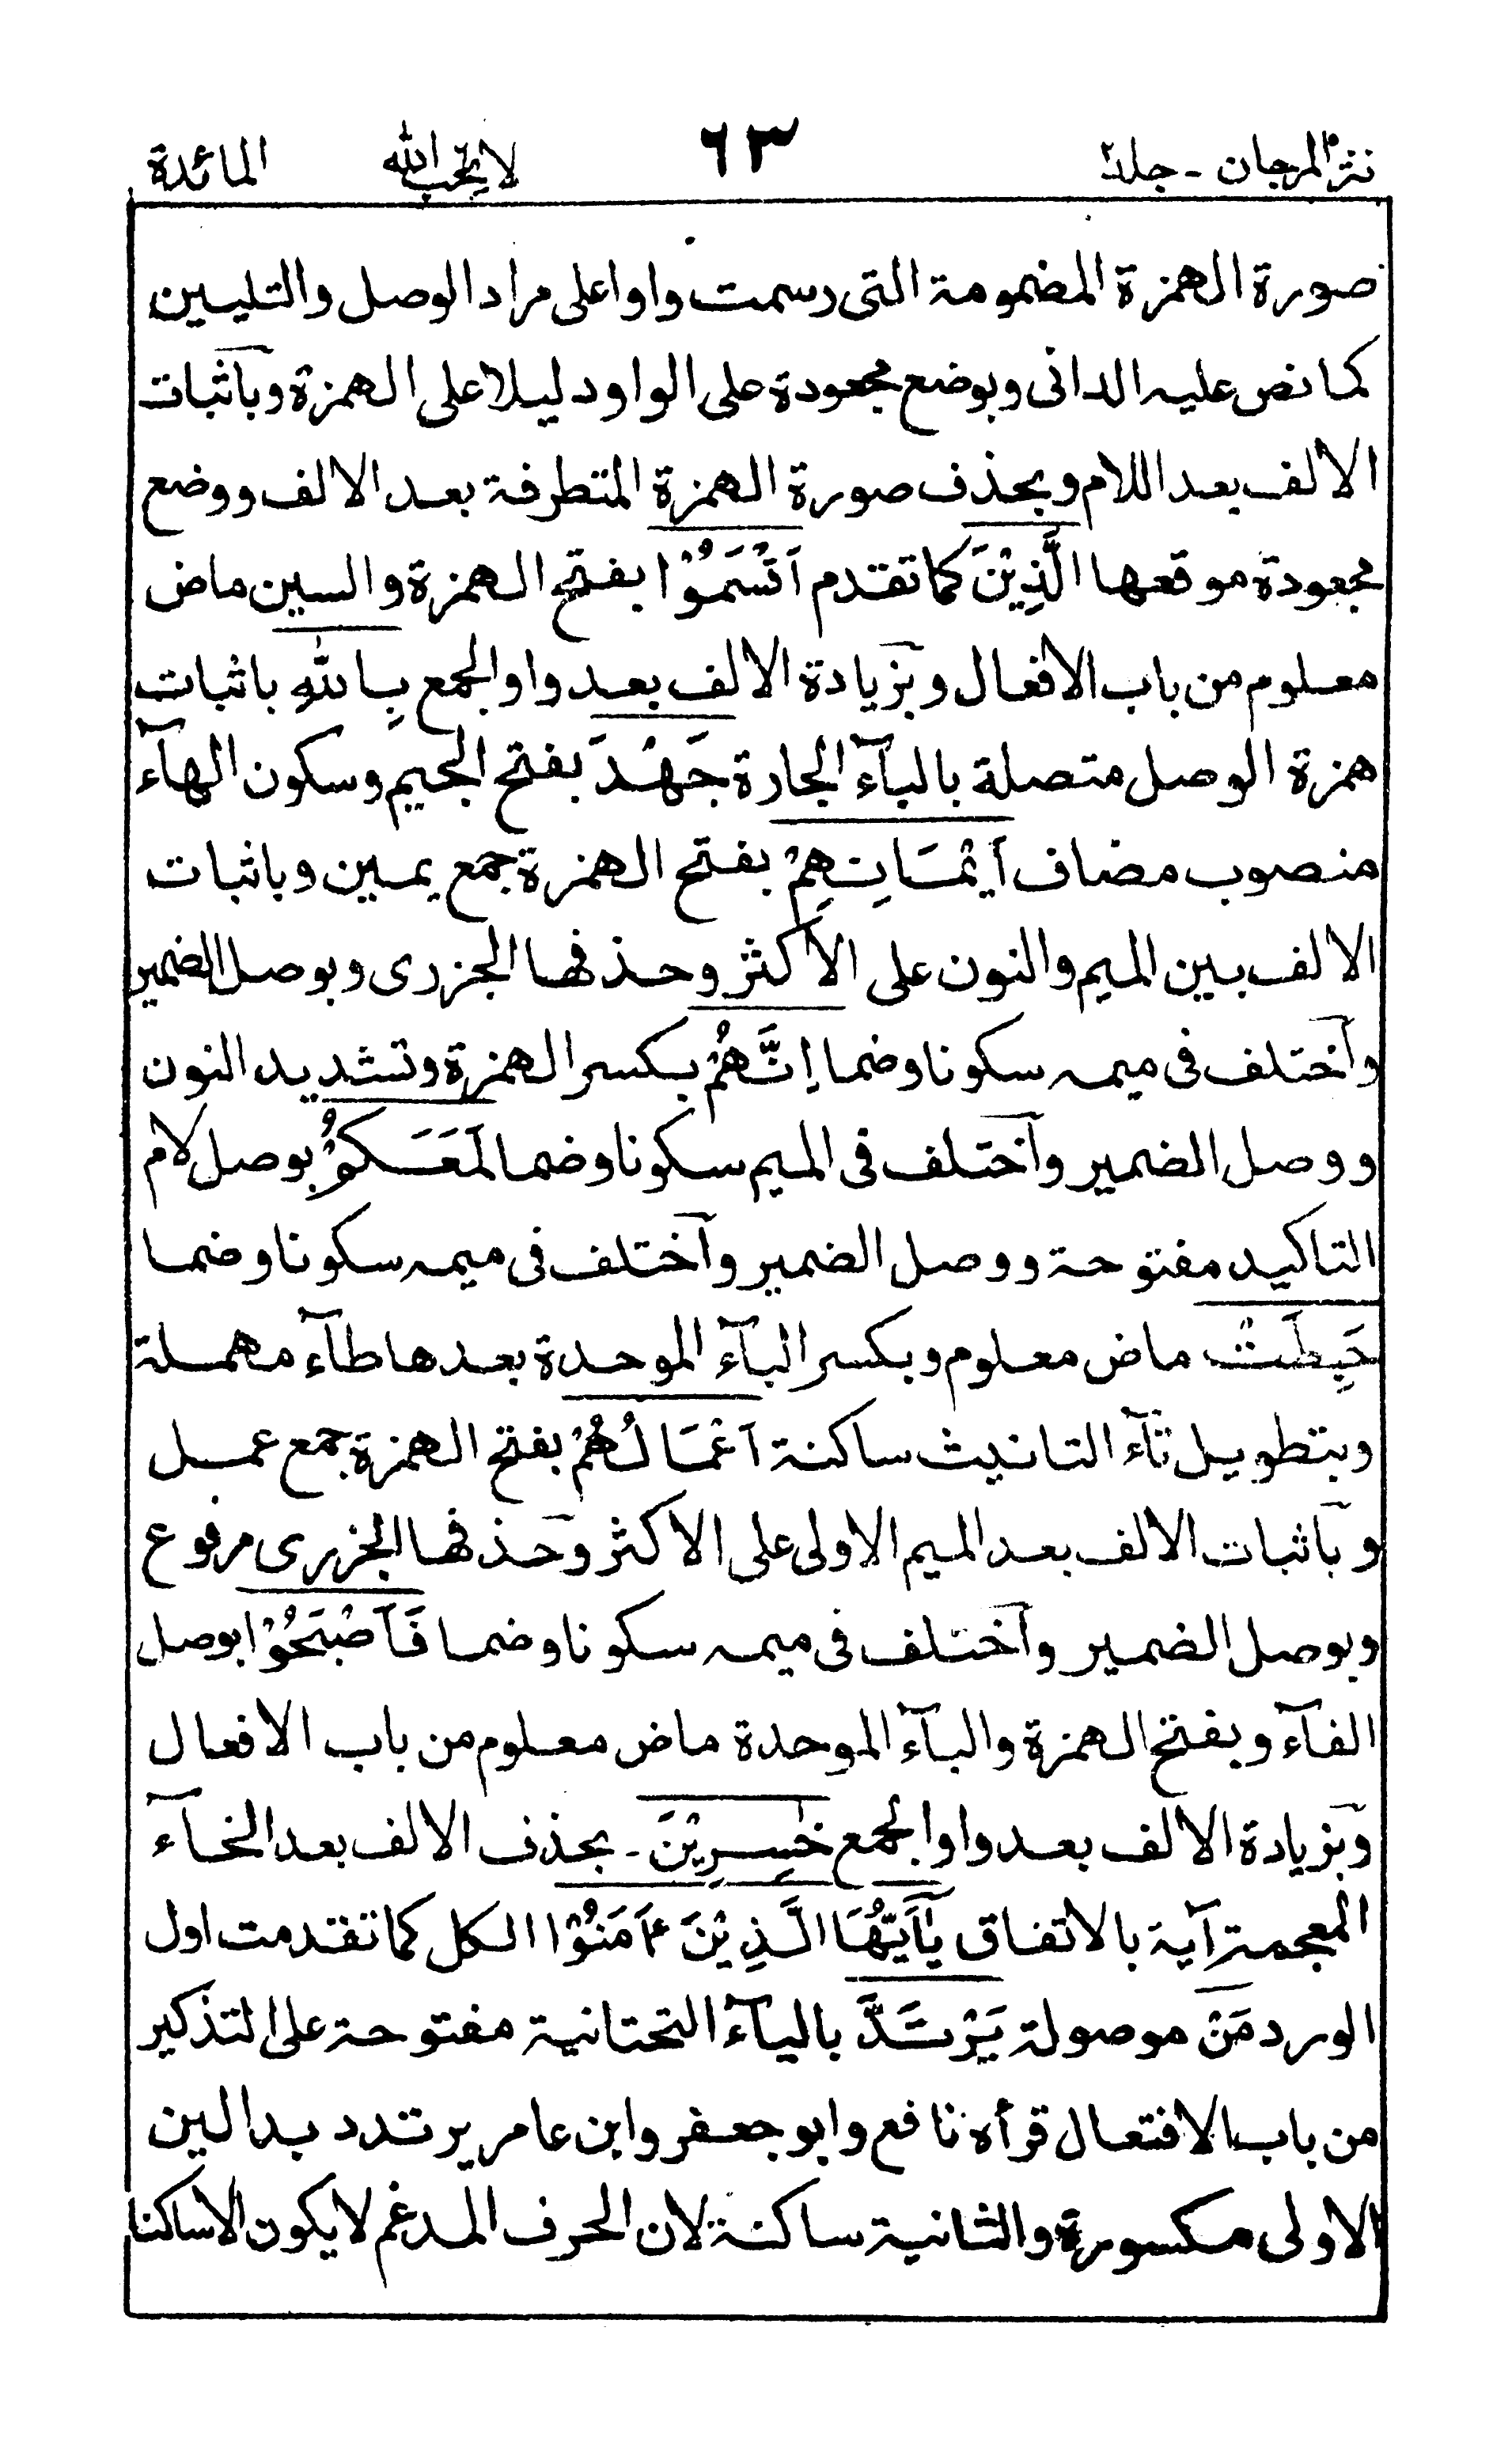 نثر المرجان - جلد ٢ ٦٣ لا يحب الله المائدة
صورة الهمزة المضمومة التى رسمت واوا على مراد الوصل والتليين
كما نص عليه الدانى وبوضع مجعودة على الواو دليلا على الهمزة وبآثبات
الالف بعد اللام وبحذف صورة الهمزة المتطرفة بعد الالف ووضع
مجعودة موقعها الَّذِيْنَ كما تقدم اَقْسَمُوْا بفتح الهمزة والسين ماض
معلوم من باب الافعال وبزيادة الالف بعد واو الجمع بِاللّٰهِ باثبات
همزة الوصل متصلة بالبآء الجارة جَهْدَ بفتح الجيم وسكون الهآء
منصوب مضاف اَيْمَانِهِمْ بفتح الهمزة جمع يمين وباثبات
الالف بين الميم والنون على الاكثر وحذفها الجزرى وبوصل الضمير
وآختلف فى ميمه سكونا وضما اِنَّهُمْ بكسر الهمزة وتشديد النون
ووصل الضمير وآختلف فى الميم سكونا وضما لَمَعَكُمْ بوصل لام
التاكيد مفتوحة ووصل الضمير وآختلف فى ميمه سكونا وضما
حَبِطَتْ ماض معلوم وبكسر البآء الموحدة بعدها طآء مهملة
وبتطويل تآء التانيث ساكنة اَعْمَالُهُمْ بفتح الهمزة جمع عمل
وبآثبات الالف بعد الميم الاولى على الاكثر وحذفها الجزرى مرفوع
وبوصل الضمير وآختلف فى ميمه سكونا وضما فَاَصْبَحُوْا بوصل
الفآء وبفتح الهمزة والبآء الموحدة ماض معلوم من باب الافعال
وبزيادة الالف بعد واو الجمع خٰسِرِيْنَ - بحذف الالف بعد الخآء
المعجمة آية بالاتفاق يٰٓاَيُّهَا الَّذِيْنَ ءَامَنُوْا الكل كما تقدمت اول
الورد مَنْ موصولة يَرْتَدَّ باليآء التحتانية مفتوحة على التذكير
من باب الافتعال قرأه نافع وابو جعفر وابن عامر يرتدد بدالين
الاولى مكسورة والثانية ساكنة لان الحرف المدغم لا يكون الا ساكنا